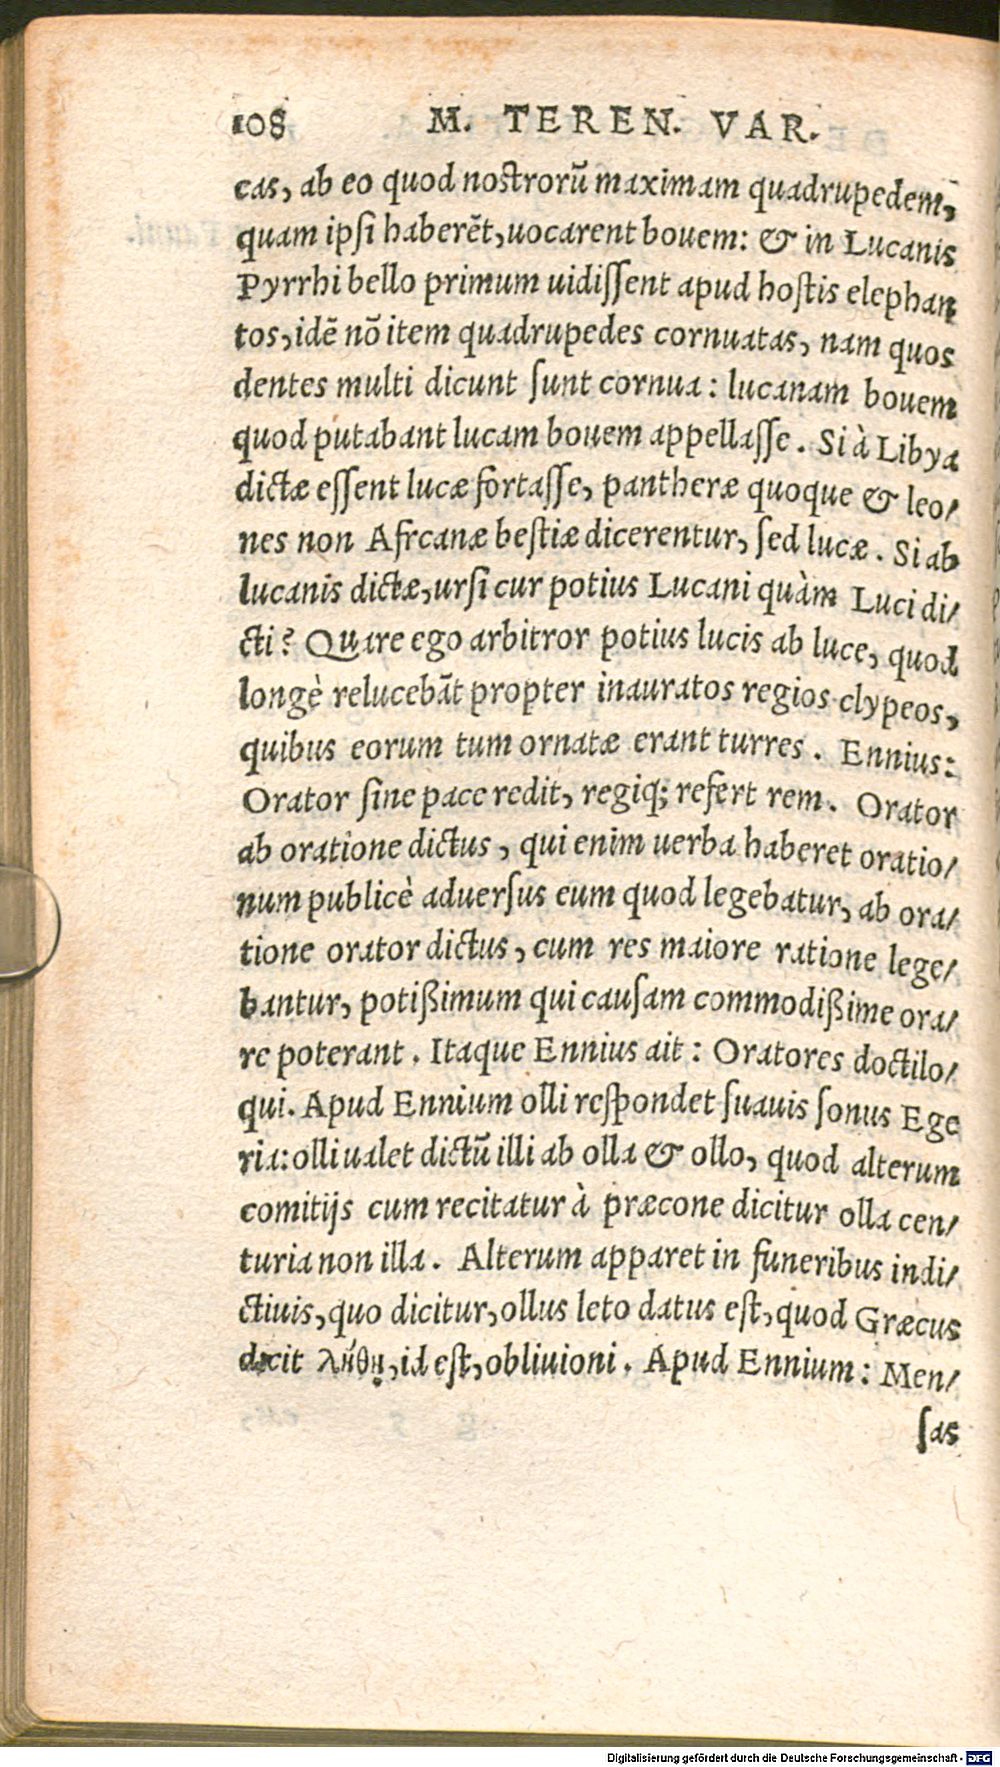 108 M. TEREN. VAR.
cas, ab eo quod nostrorũ maximam quadrupedem,
quam ipſi haberẽt, uocarent bouem: & in Lucanis
Pyrrhi bello primum uidiſſent apud hoſtis elephan
tos, idẽ nõ item quadrupedes cornuatas, nam quos
dentes multi dicunt ſunt cornua: lucanam bouem
quod putabant lucam bouem appellaſſe. Si à Libya
dictæ eſſent lucæ fortaſſe, pantheræ quoque & leo/
nes non Afrcanæ beſtiæ dicerentur, ſed lucæ. Si ab
lucanis dictæ, urſi cur potius Lucani quàm Luci di/
cti? Quare ego arbitror potius lucis ab luce, quod
longè relucebãt propter inauratos regios clypeos,
quibus eorum tum ornatæ erant turres. Ennius:
Orator ſine pace redit, regiq; refert rem. Orator
ab oratione dictus, qui enim uerba haberet oratio/
num publicè aduerſus eum quod legebatur, ab ora/
tione orator dictus, cum res maiore ratione lege/
bantur, potißimum qui cauſam commodißime ora/
re poterant. Itaque Ennius ait: Oratores doctilo/
qui. Apud Ennium olli reſpondet ſuauis ſonus Ege
ria: olli ualet dictũ illi ab olla & ollo, quod alterum
comitijs cum recitatur à præcone dicitur olla cen/
turia non illa. Alterum apparet in funeribus indi/
ctiuis, quo dicitur, ollus leto datus eſt, quod Græcus
dicit λήθῃ, id eſt, obliuioni. Apud Ennium: Men/
ſas
Digitalisierung gefördert durch die Deutsche Forschungsgemeinschaft - DFG